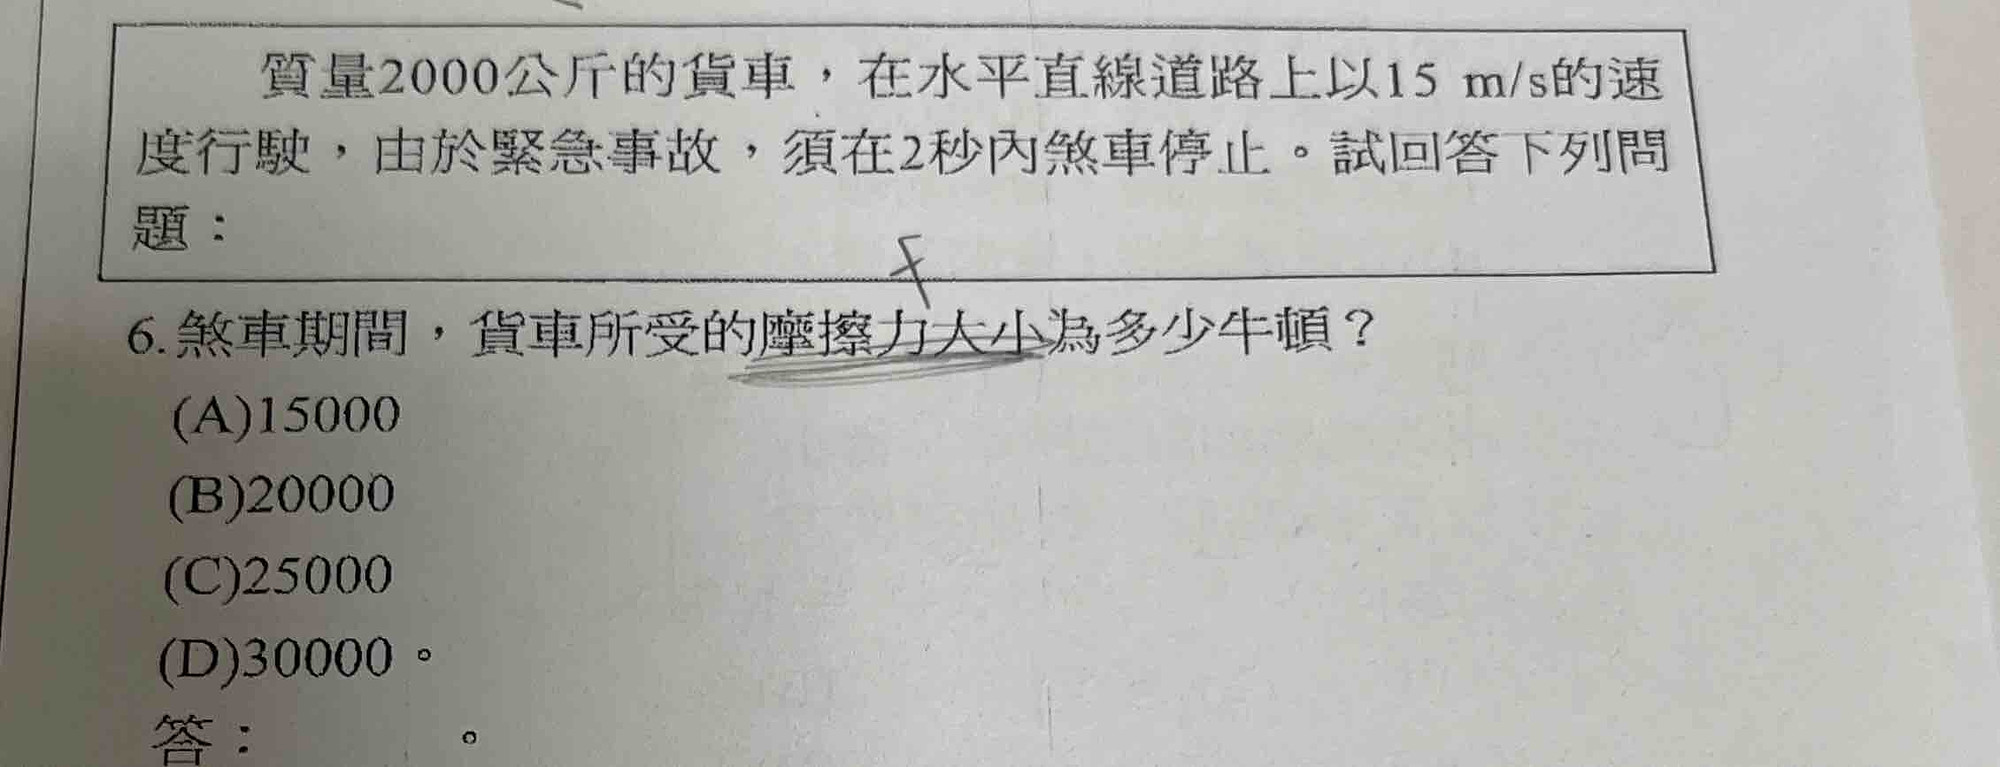 質量2000公斤的貨車，在水平直線道路上以15 m/s的速
度行駛，由於緊急事故，須在2秒內煞車停止。試回答下列問
題：
f
6.煞車期間，貨車所受的摩擦力大小為多少牛頓？
(A)15000
(B)20000
(C)25000
(D)30000。
答：　　　。